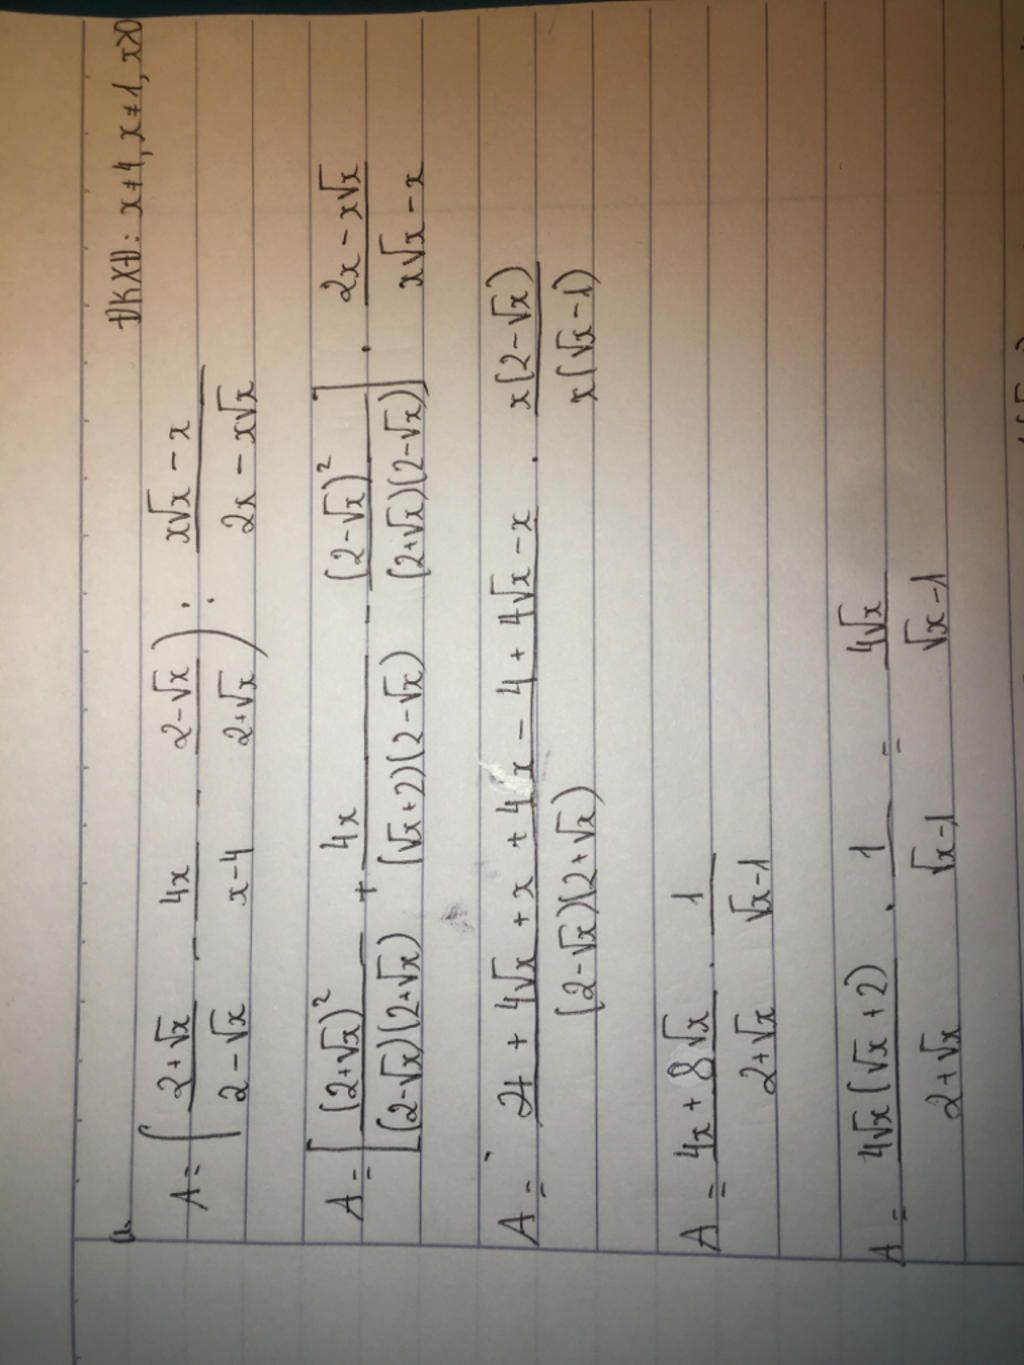 a. ĐKXĐ: x≠4, x≠1, x>0
A = ( (2+√x)/(2-√x) - 4x/(x-4) - (2-√x)/(2+√x) ) : (x√x - x)/(2x - x√x)
A = [ (2+√x)²/((2-√x)(2+√x)) + 4x/((√x+2)(2-√x)) - (2-√x)²/((2+√x)(2-√x)) ] . (2x - x√x)/(x√x - x)
A = (4 + 4√x + x + 4x - 4 + 4√x - x)/((2-√x)(2+√x)) . x(2-√x)/(x(√x-1))
A = (4x + 8√x)/(2+√x) . 1/(√x-1)
A = 4√x(√x+2)/(2+√x) . 1/(√x-1) = 4√x/(√x-1)